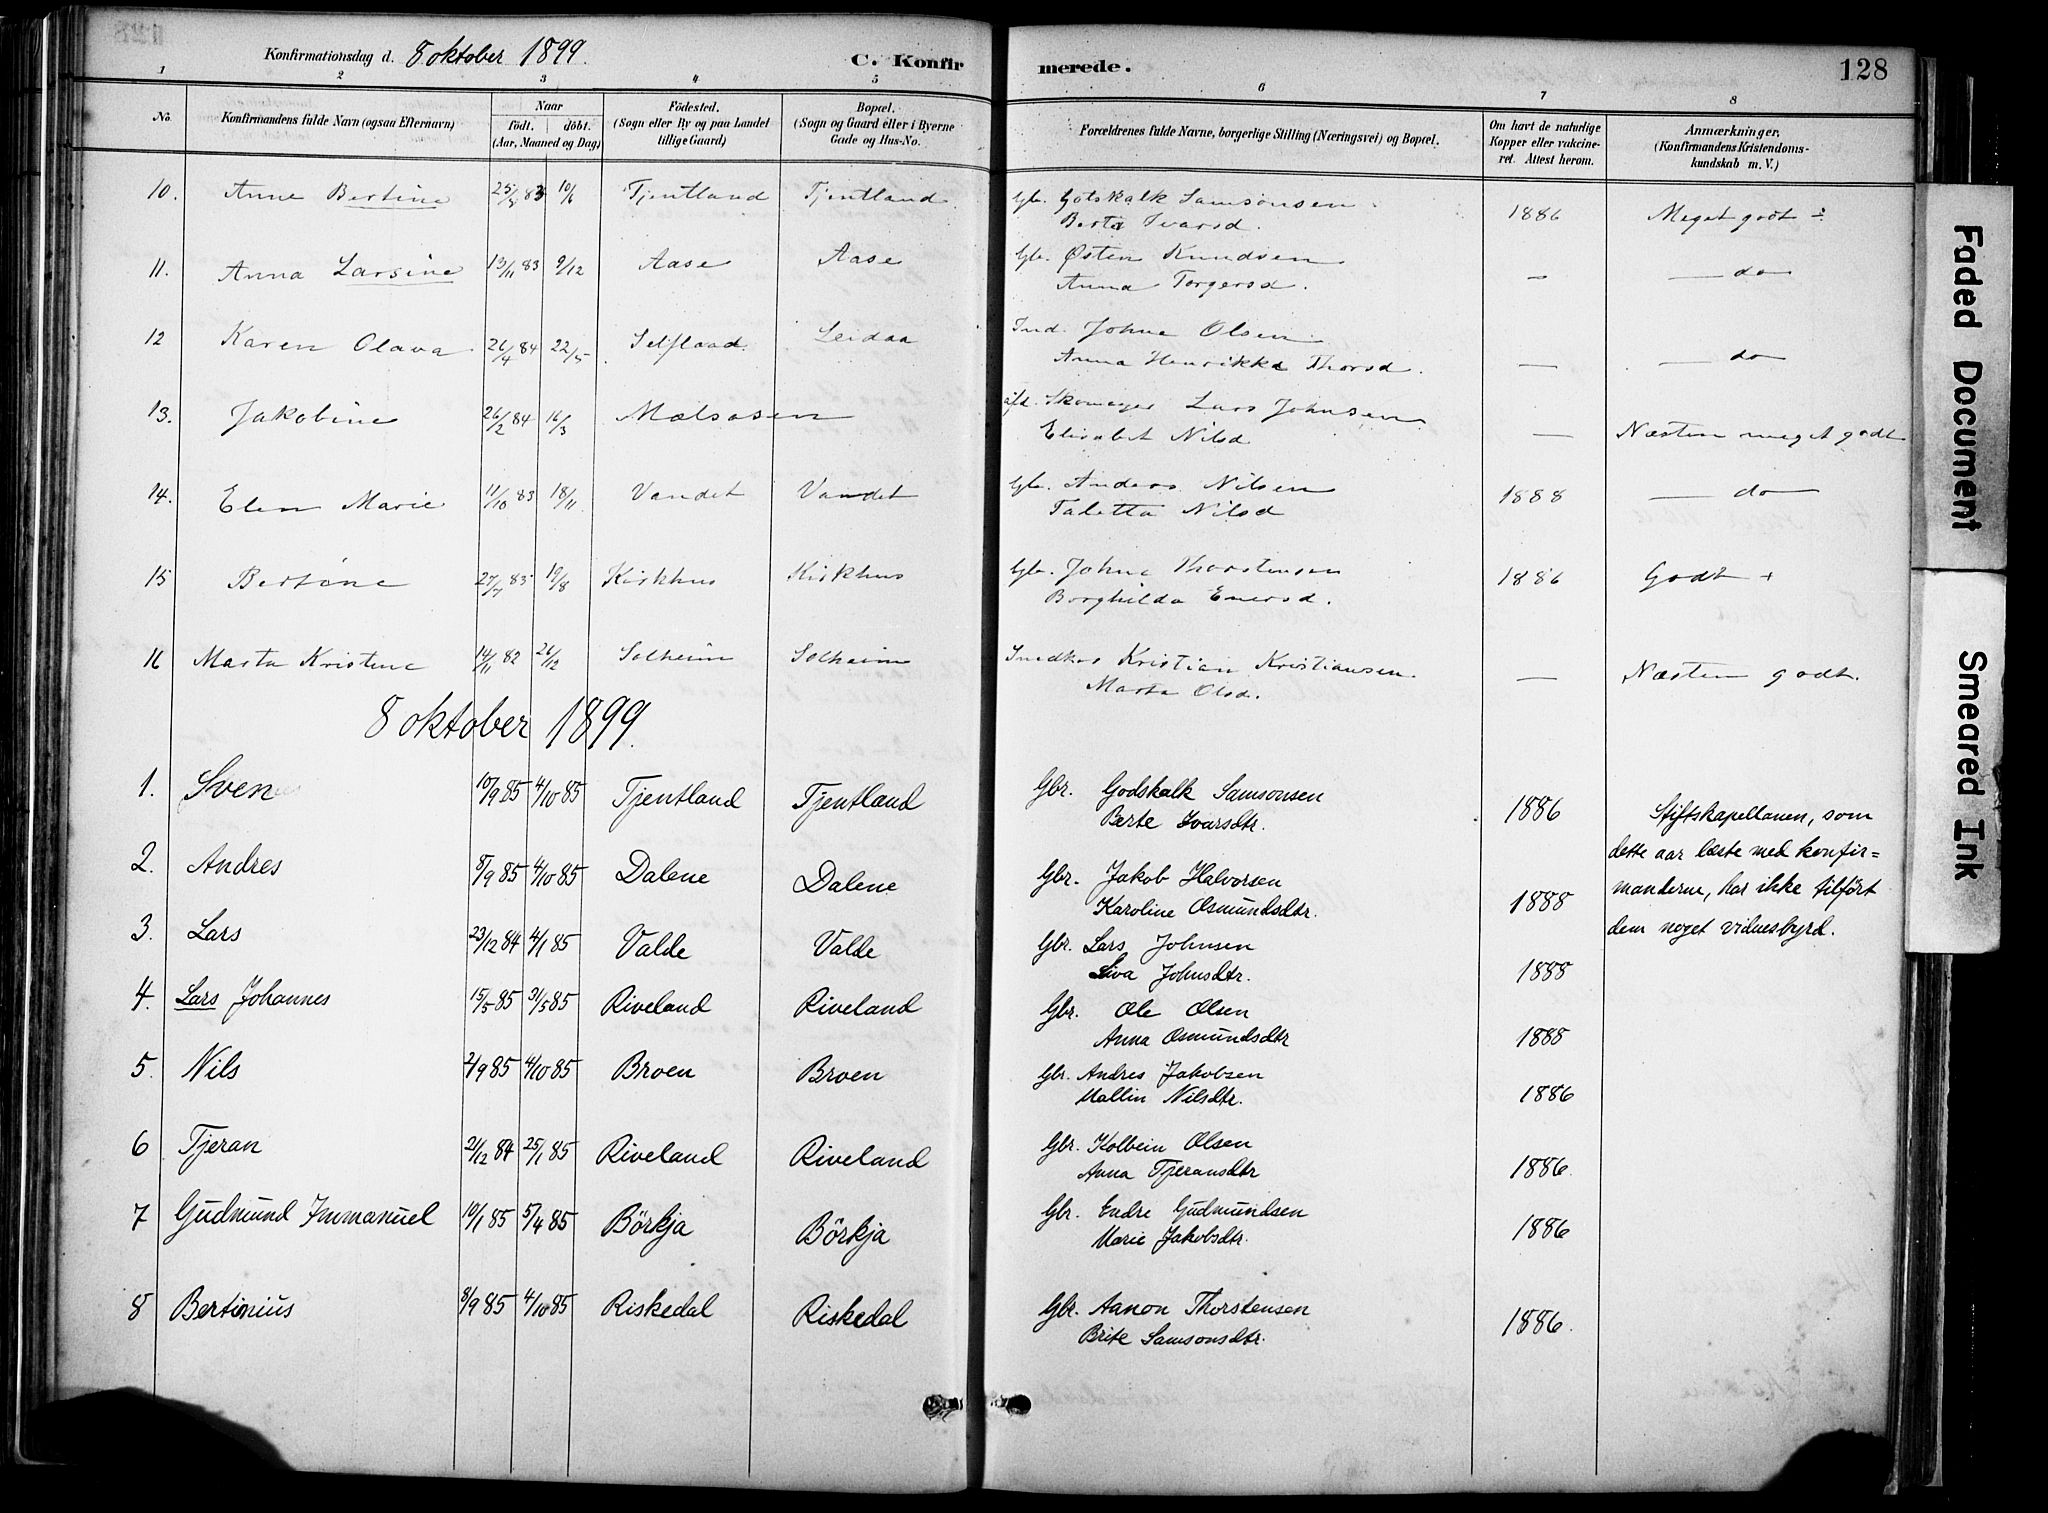 Konfirmationsdag d. 8 oktober 1899. C. Konfirmerede. 128
1 2 3 4 5 6 7 8
No. Konfirmandens fulde Navn (ogsaa Efternavn) Naar født. døbt. (Aar, Maaned og Dag) Fødested. (Sogn eller By og paa Landet tillige Gaard) Bopæl. (Sogn og Gaard eller i Byerne Gade og Hus-No. Forældrenes fulde Navne, borgerlige Stilling (Næringsvei) og Bopæl. Om havt de naturlige Kopper eller vakcineret. Attest herom. Anmærkninger. (Konfirmandens Kristendomskundskab m. V.)
10. Anne Bertine 25/5 83 10/6 Tjentland Tjentland Gb. Gotskalk Samsonsen 1886 Meget godt ÷
Berta Ivarsd.
11. Anna Larsine 13/11 83 9/12 Aase Aase Gb. Østen Knudsen — — do
Anna Torgersd.
12 Karen Olava 26/4 84 22/5 Selfland Leidaa Ind. Johne Olsen
Anna Henrikka Thorsd. — — do
13. Jakobine 26/2 84 16/3 Mælsosen Skomager Lars Johnsen
Elisabet Nilsd — Næsten meget godt
14. Elen Marie 11/10 83 18/11 Vandet Vandet Gb. Anders Nilsen 1888 — do
Taletta Nilsd
15 Bertine 27/7 83 19/8 Kirkhus Kirkhus Gb. Johne Thorstensen 1886 Godt +
Borghilda Enersd.
16 Marta Kristine 14/11 82 26/12 Solheim Solheim Kristian Kristiansen — Næsten godt.
Marta Olsd.
8 oktober 1899.
1. Sven 10/9 85 4/10 85 Tjentland Tjentland Gbr. Godskalk Samsonsen 1886 Stiftskapellanen, som
Berte Ivarsdtr. dette aar læste med konfir=
2. Andres 8/9 85 4/10 85 Dalene Dalene Gbr. Jakob Halvorsen 1888 manderne, har ikke tilført
Karoline Osmundsdtr. dem noget vidnesbyrd.
3. Lars 23/12 84 4/1 85 Valde Valde Gbr. Lars Johnsen
Siva Johnsdtr. 1888
4. Lars Johannes 15/5 85 31/5 85 Riveland Riveland Gbr. Ole Olsen
Anna Osmundsdtr 1888
5. Nils 2/9 85 4/10 85 Broen Broen Gbr. Andres Jakobsen
Mallin Nilsdtr. 1886
6 Tjeran 21/12 84 25/1 85 Riveland Riveland Gbr. Kolbein Olsen
Anna Tjeransdtr 1886.
7 Gudmund Immanuel 10/1 85 5/4 85 Börkja Börkja Gbr. Endre Gudmundsen
Marie Jakobsdtr. 1886
8 Bertinius 8/9 85 4/10 85 Riskedal Riskedal Gbr. Aanon Thorstensen 1886.
Brite Samsonsdtr.
Faded Document
Smeared Ink